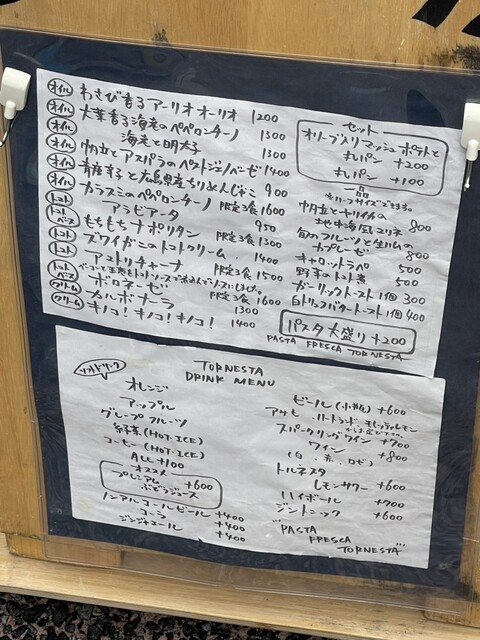 オイル わさび香るアーリオオーリオ 1200
オイル 大葉香る海老のペペロンチーノ 1300
オイル 海老と明太子 1300
オイル 帆立とアスパラのペストジノベーゼ 1400
オイル 青唐辛子と広島県産ちりめんじゃこ 900
オイル カラスミのペペロンチーノ 限定3食 1600
トマト アラビアータ 950
トマトベース もちもちナポリタン 1300
トマト ズワイガニのトマトクリーム 1400
トマト アマトリチャーナ 限定3食 1500
トマトベース ボロネーゼ 限定3食 1600
クリーム カルボナーラ 1300
クリーム キノコ!キノコ!キノコ! 1400
セット
オリーブ入りマッシュポテトと
丸パン +200
丸パン +100
一品
帆立とヤリイカの
地中海風マリネ 800
旬のフルーツと生ハムの
カプレーゼ 800
キャロットラペ 500
野菜のトマト煮 500
ガーリックトースト1個 300
白トリュフバタートースト1個 400
パスタ大盛り +200
PASTA FRESCA TORNESTA
TORNESTA
DRINK MENU
ソフトドリンク
オレンジ
アップル
グレープフルーツ
紅茶(HOT・ICE)
コーヒー(HOT・ICE)
ALL +100
オススメ
プレミアム +600
ぶどうジュース
ノンアルコールビール +400
コーラ +400
ジンジャエール +400
ビール(小瓶) +600
スパークリングワイン +700
ワイン +800
(白・赤・ロゼ)
トルネスタ
レモンサワー +600
ハイボール +700
ジントニック +600
"PASTA
FRESCA
TORNESTA"